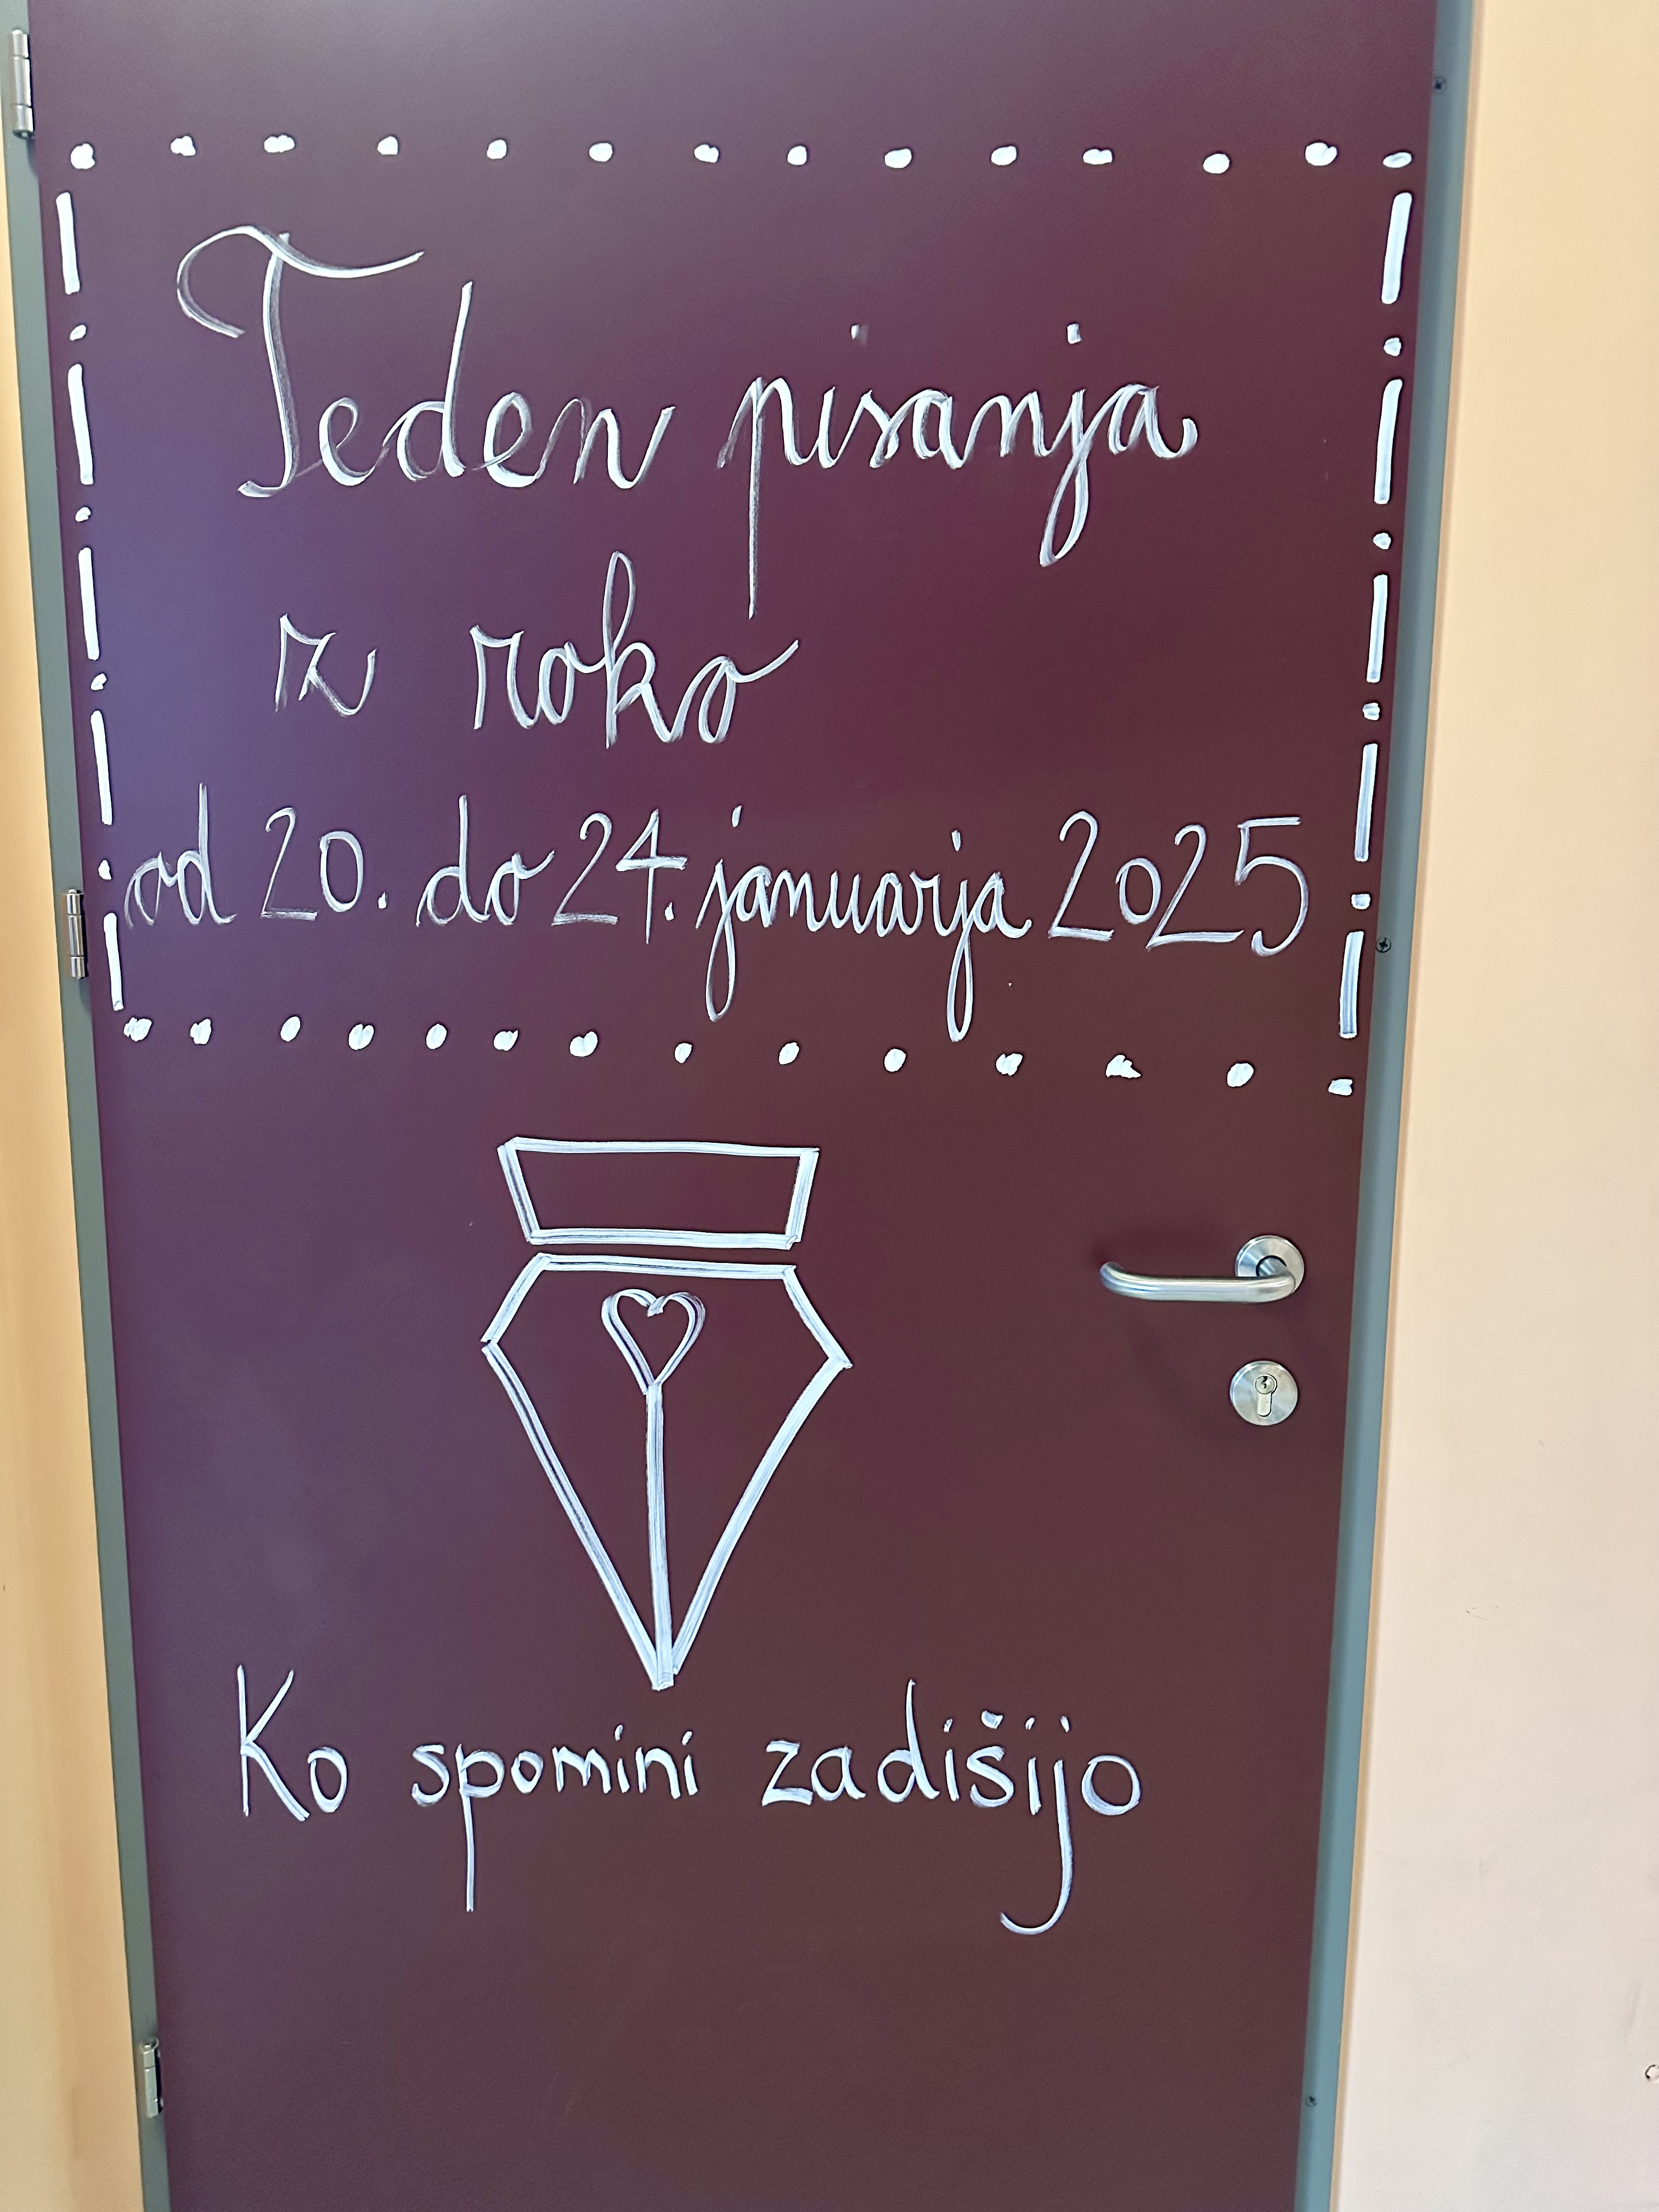 Teden pisanja
z roko
od 20. do 24. januarja 2025
Ko spomini zadišijo